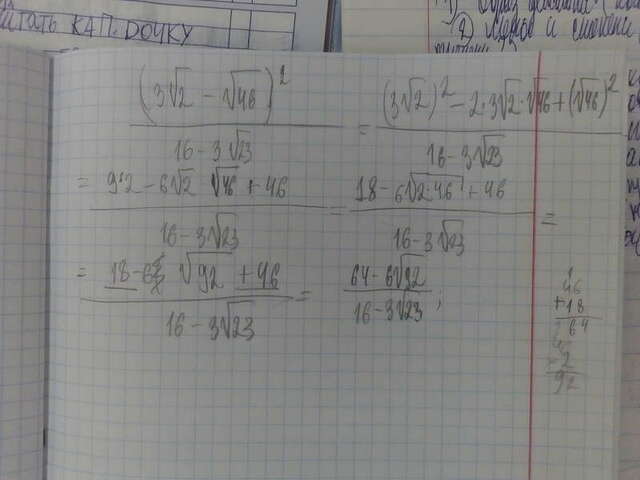 ИТАТЬ КАП. ДОЧКУ
(3√2 − √46)² / (16 − 3√23) = ((3√2)² − 2·3√2·√46 + (√46)²) / (16 − 3√23)
= (9·2 − 6√2 √46 + 46) / (16 − 3√23) = (18 − 6√(2·46) + 46) / (16 − 3√23) =
= (18 − 6√92 + 46) / (16 − 3√23) = (64 − 6√92) / (16 − 3√23);
46
+18
64
2
92